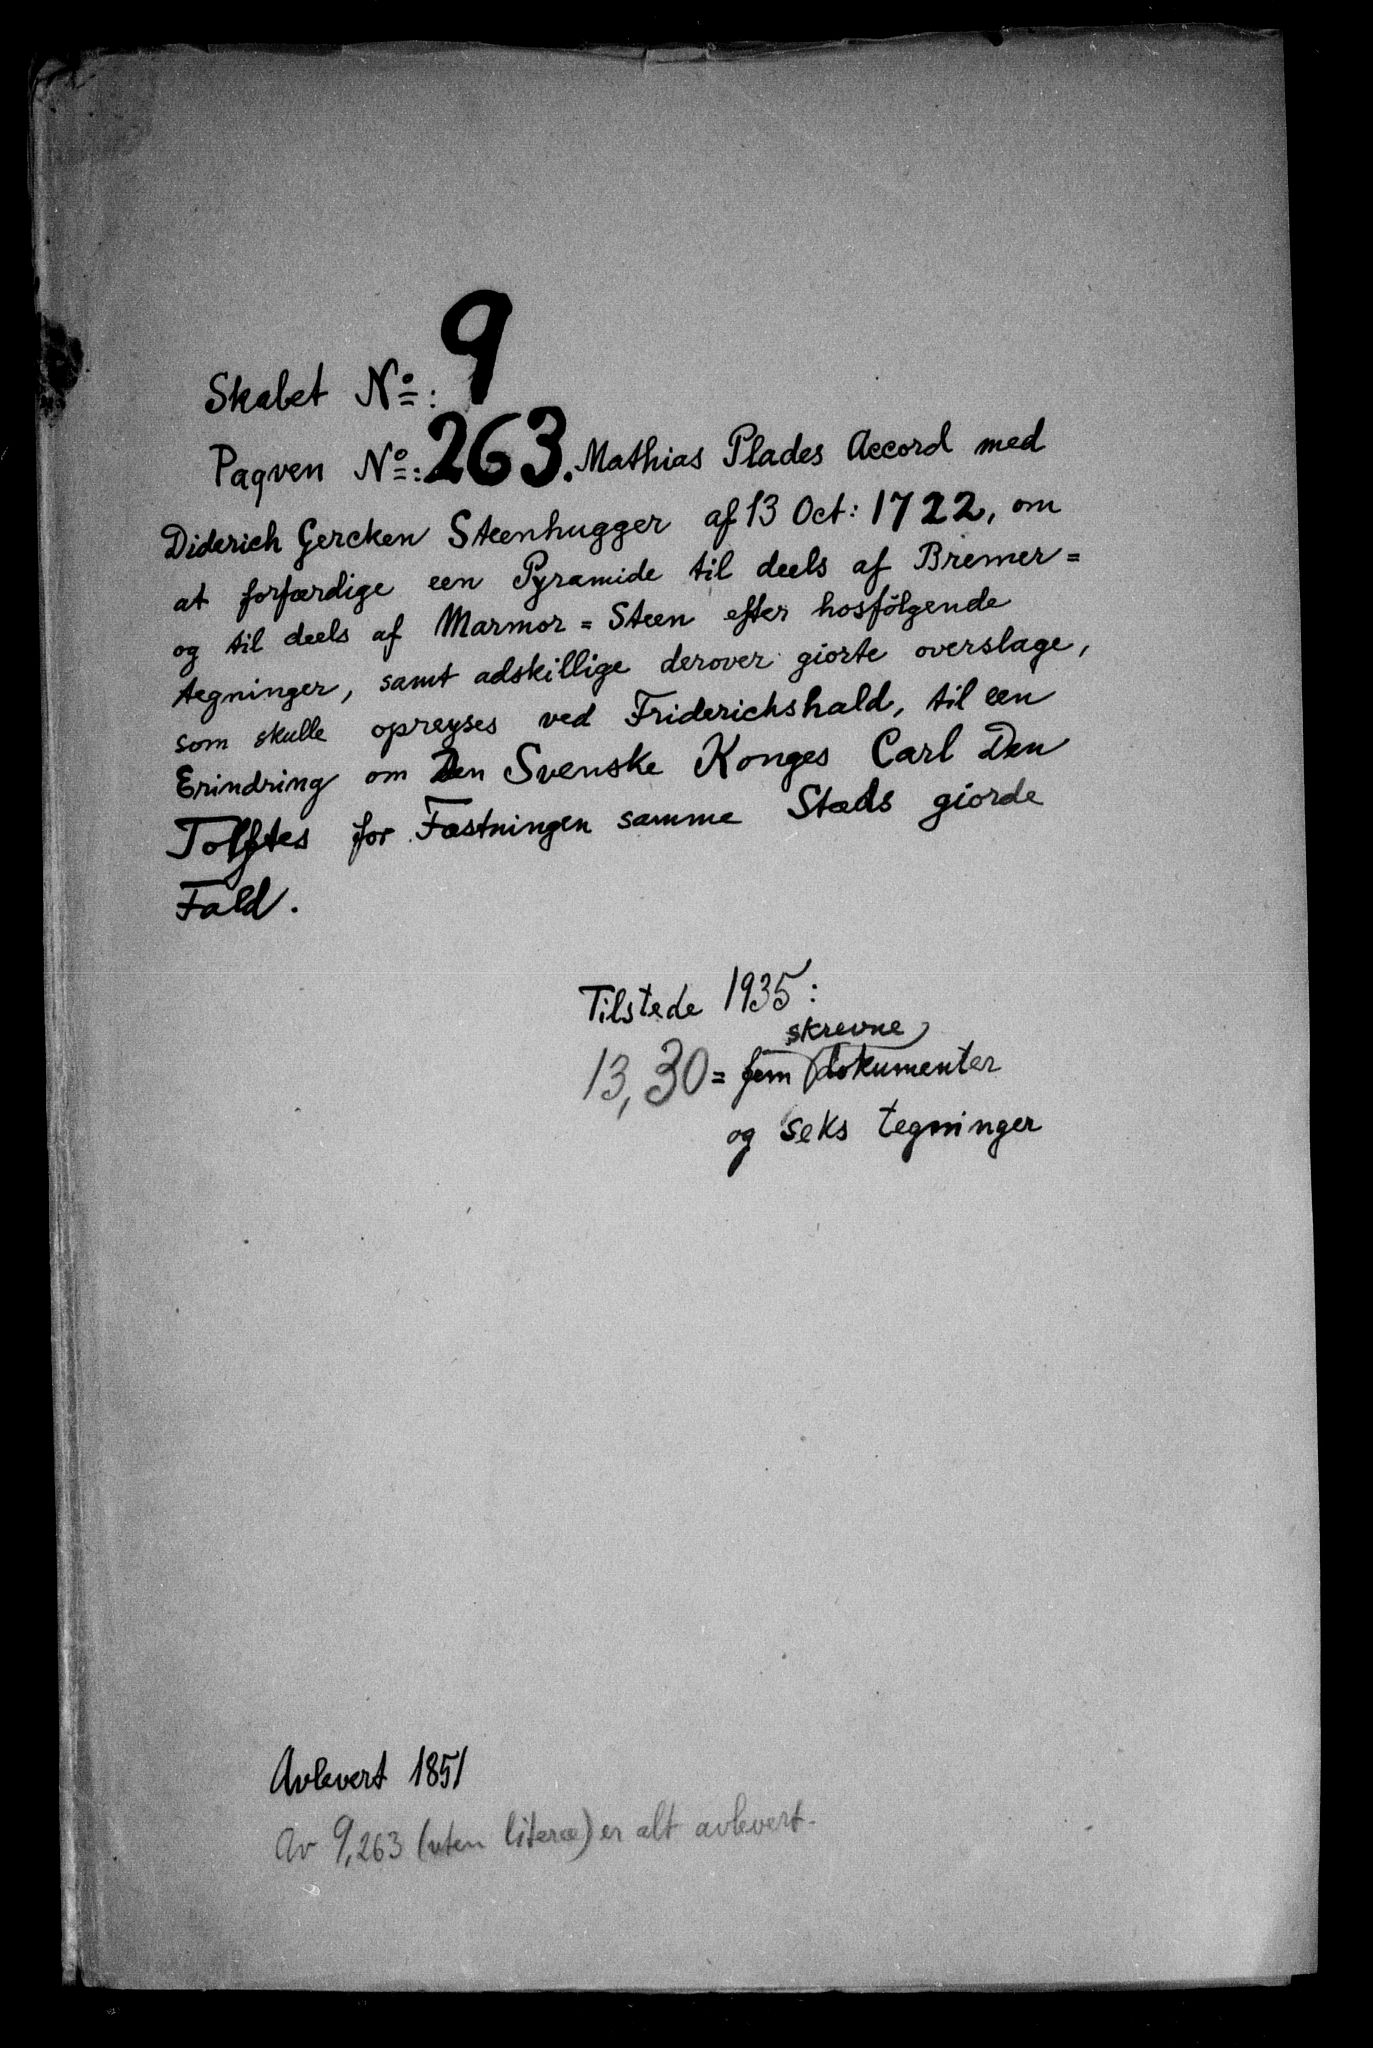 Skabet No: 9
Paqven No: 263. Mathias Plades Accord med
Diderich Gercken Steenhugger af 13 Oct: 1722, om
at forfærdige een Pyramide til deels af Bremer=
og til deels af Marmor = Steen efter hosfölgende
tegninger, samt adskillige derover giorte overslage,
som skulle opreyses ved Friderichshald, til een
Erindring om Den Svenske Konges Carl Den
Tolftes for Fæstningen samme Stæds giorde
Fald.
Tilstede 1935:
skrevne
13,30 = fem dokumenter
og seks tegninger
Avlevert 1851
Av 9,263 (uten literæ) er alt avlevert.